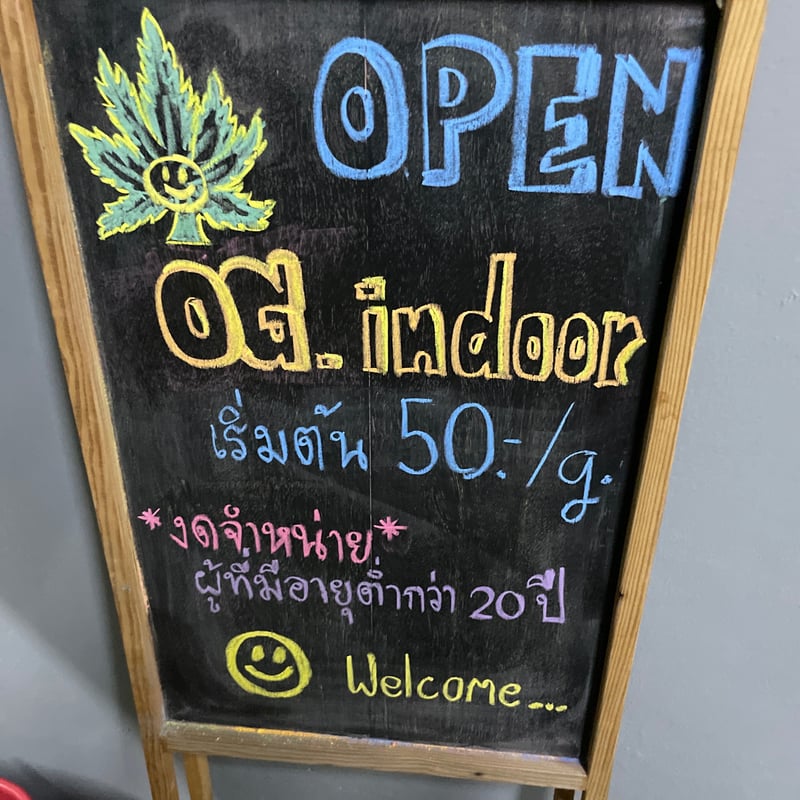 OPEN
OG. indoor
เริ่มต้น 50.-/g.
*งดจำหน่าย*
ผู้ที่มีอายุต่ำกว่า 20 ปี
Welcome...